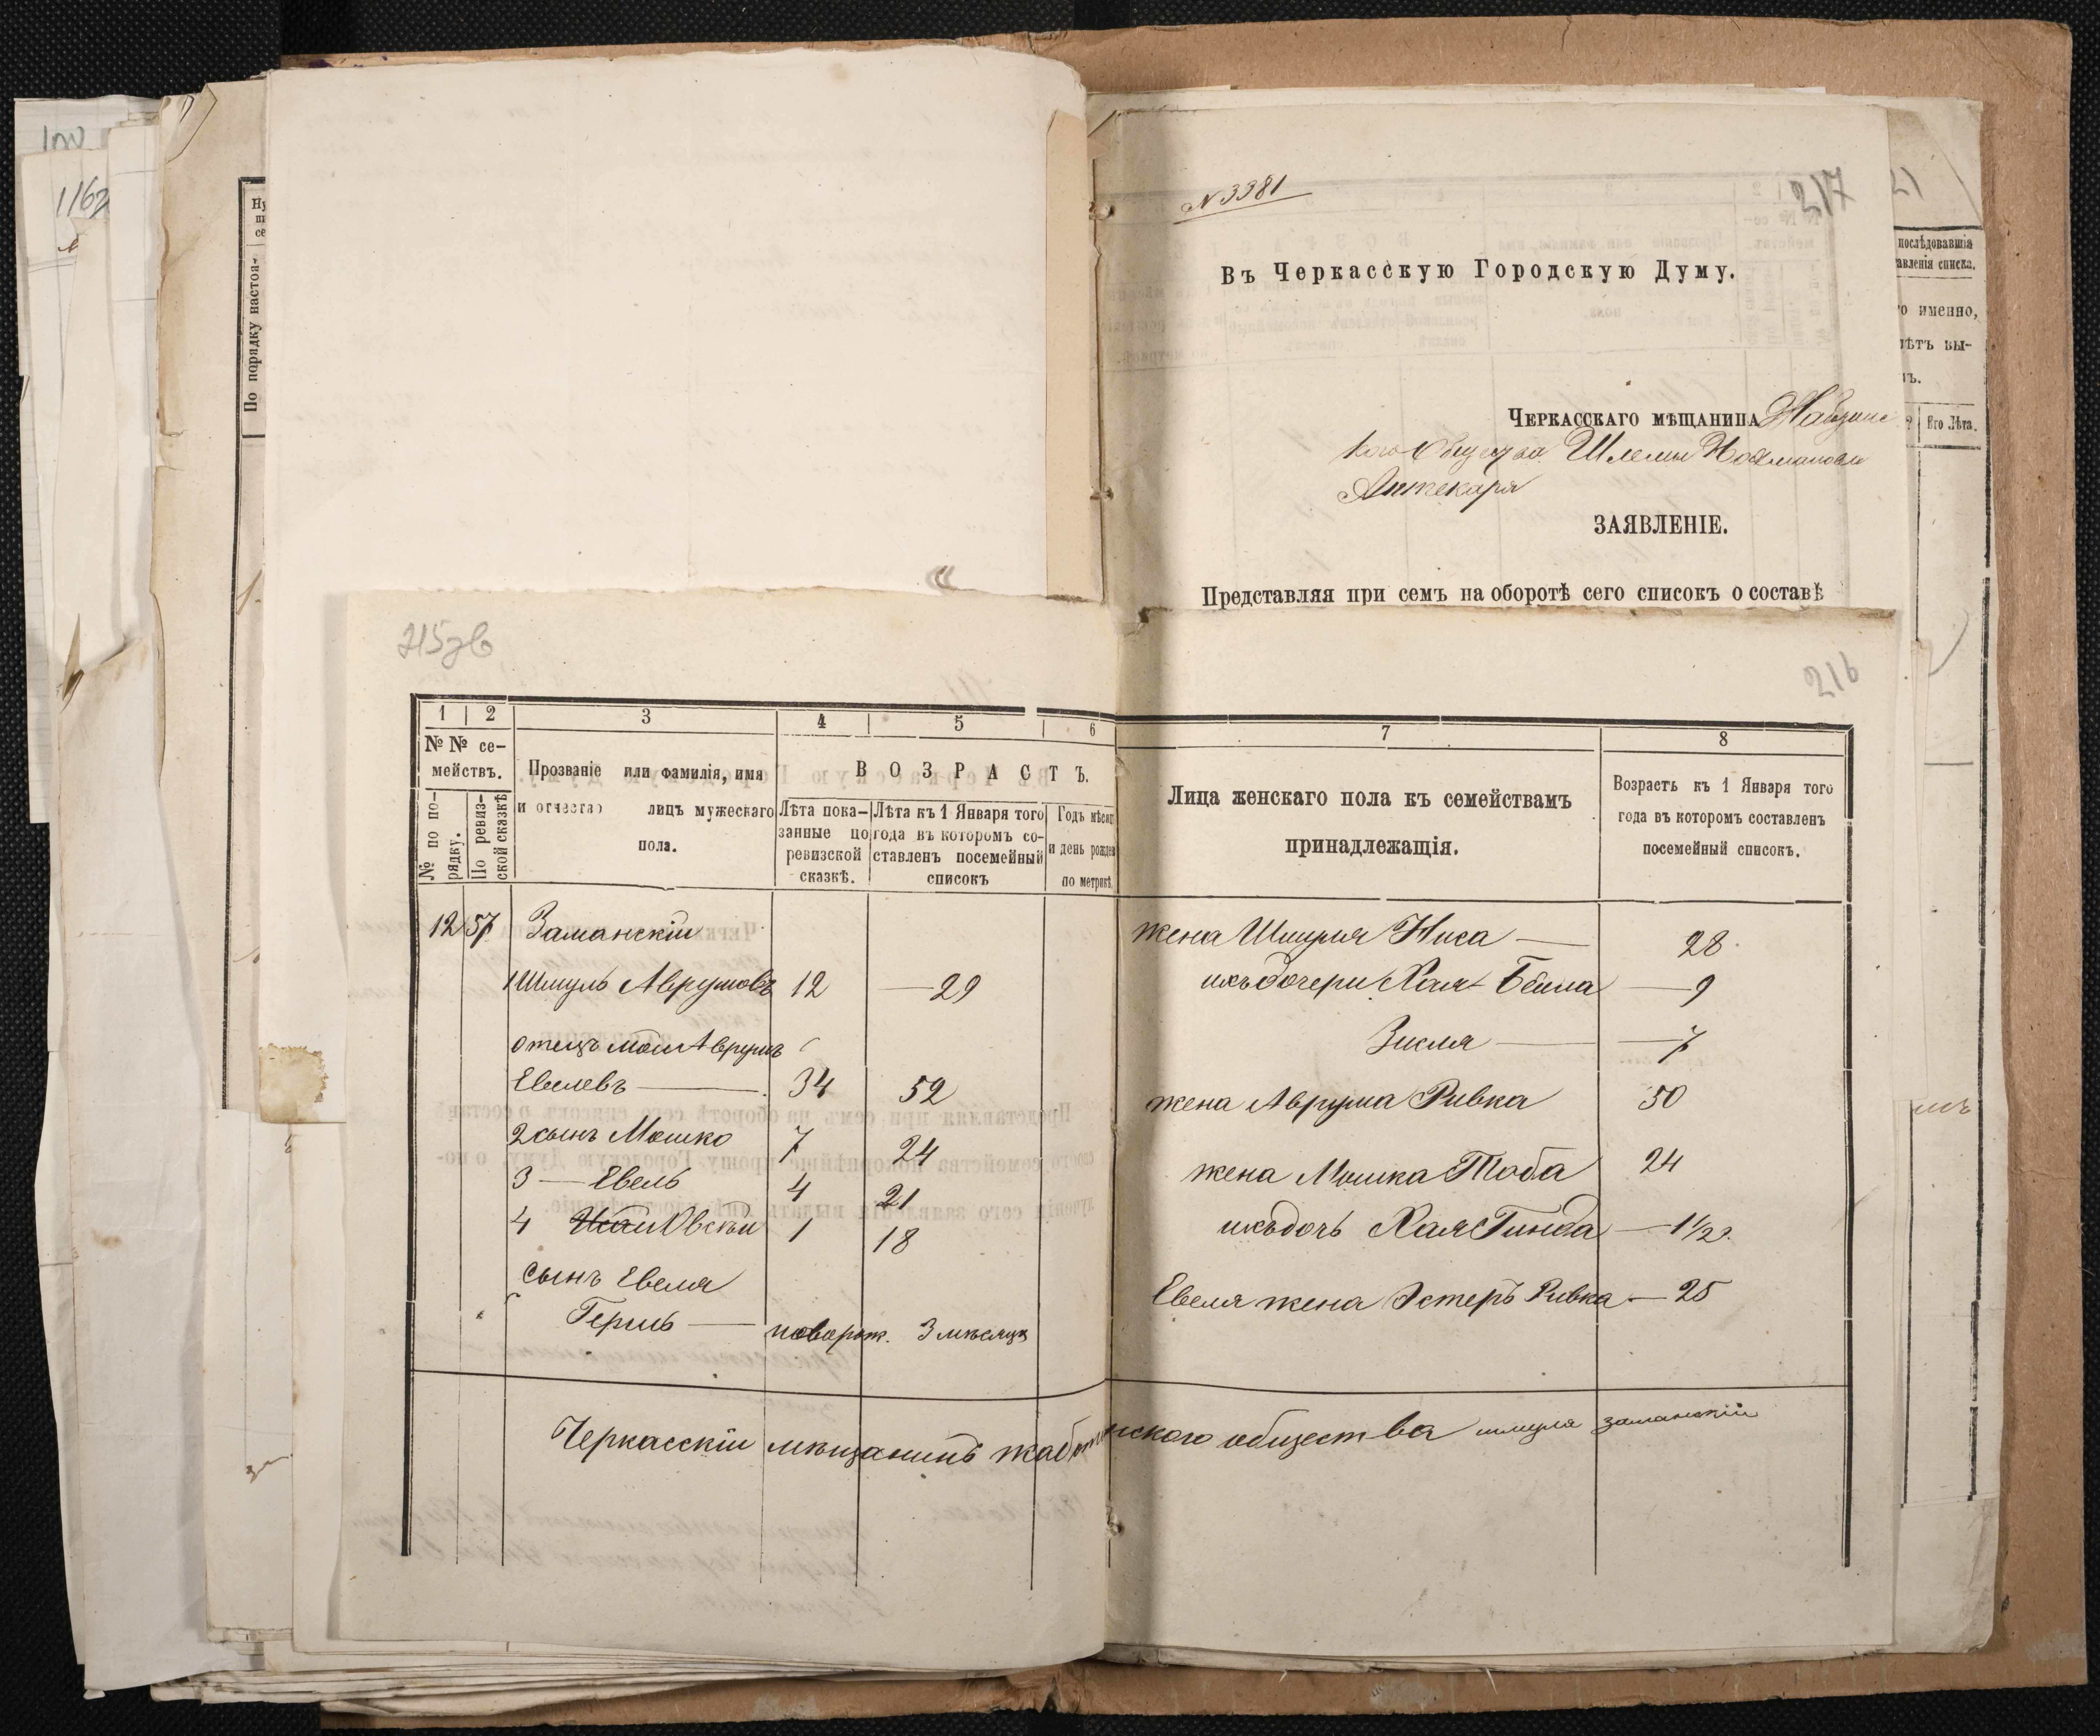 N 3381
217
Въ Черкасскую Городскую Думу.
Черкасскаго мѣщанина
Общества Шлемы
Аптекаря
ЗАЯВЛЕНІЕ.
Представляя при семъ на оборотѣ сего списокъ о составѣ
По порядку настоя-
послѣдовавшія
авленія списка.
о именно,
лѣтъ вы-
Его Лѣта.
1162
215зв
216
1 2 3 4 5 6 7 8
№ № се-
мействъ.
№ по по-
рядку.
По ревиз-
ской сказкѣ
Прозваніе или фамилія, имя
и отчество лицъ мужескаго
пола.
ВОЗРАСТЪ.
Лѣта пока-
занные по
ревизской
сказкѣ.
Лѣта къ 1 Января того
года въ которомъ со-
ставленъ посемейный
списокъ
Годъ мѣсяц
и день рожден
по метрикѣ
Лица женскаго пола къ семействамъ
принадлежащія.
Возрастъ къ 1 Января того
года въ которомъ составленъ
посемейный списокъ.
12 57 Заманскій
1 Шмуль Аврумовъ 12 — 29
отецъ мой Аврумъ
Евелевъ — 34 52
2 сынъ Мошко 7 24
3 — Евель 4 21
4 Овсѣй 1 18
сынъ Евеля
Гершъ — новорож. 3 мѣсяца
жена Шмуля Ниса — 28
ихъ дочери Хая-Бейла — 9
Зисля — 7
жена Аврума Ривка 50
жена Мошка Тоба 24
ихъ дочь Хая Гинда — 1 1/2
Евеля жена Эстеръ Ривка — 25
Черкасскій мѣщанинъ жаботинского общества шмуля заманскій